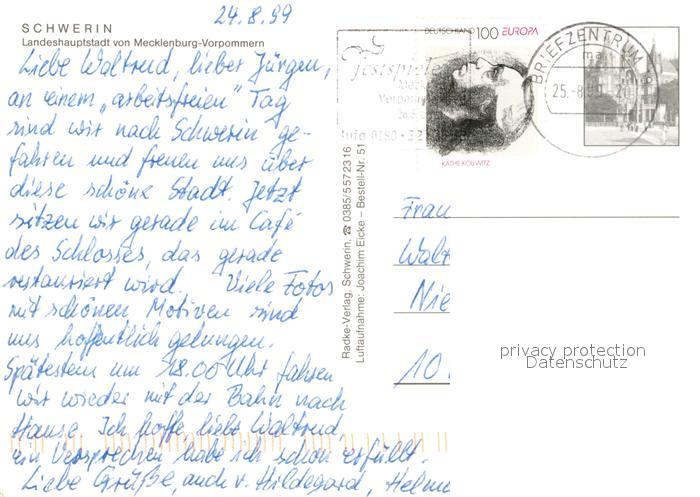 24.8.99
SCHWERIN
Landeshauptstadt von Mecklenburg-Vorpommern
Liebe Waltrud, lieber Jürgen,
an einem „arbeitsfreien“ Tag
sind wir nach Schwerin ge-
fahren und freuen uns über
diese schöne Stadt. Jetzt
sitzen wir gerade im Café
des Schlosses, das gerade
restauriert wird. Viele Fotos
mit schönen Motiven sind
uns hoffentlich gelungen.
Spätestens um 18.00 Uhr fahren
wir wieder mit der Bahn nach
Hause. Ich hoffe, liebe Waltrud,
ein Versprechen habe ich schon erfüllt.
Liebe Grüße, auch v. Hildegard, Helmu
Radke-Verlag, Schwerin, ☎ 0385/5572316
Luftaufnahme: Joachim Eicke – Bestell-Nr. 51
DEUTSCHLAND 100 EUROPA
KÄTHE KOLLWITZ
Festspiele
Vorpommern
Info 0180
BRIEFZENTRUM
25.-8.99
Frau
Walt
Nie
10
privacy protection
Datenschutz